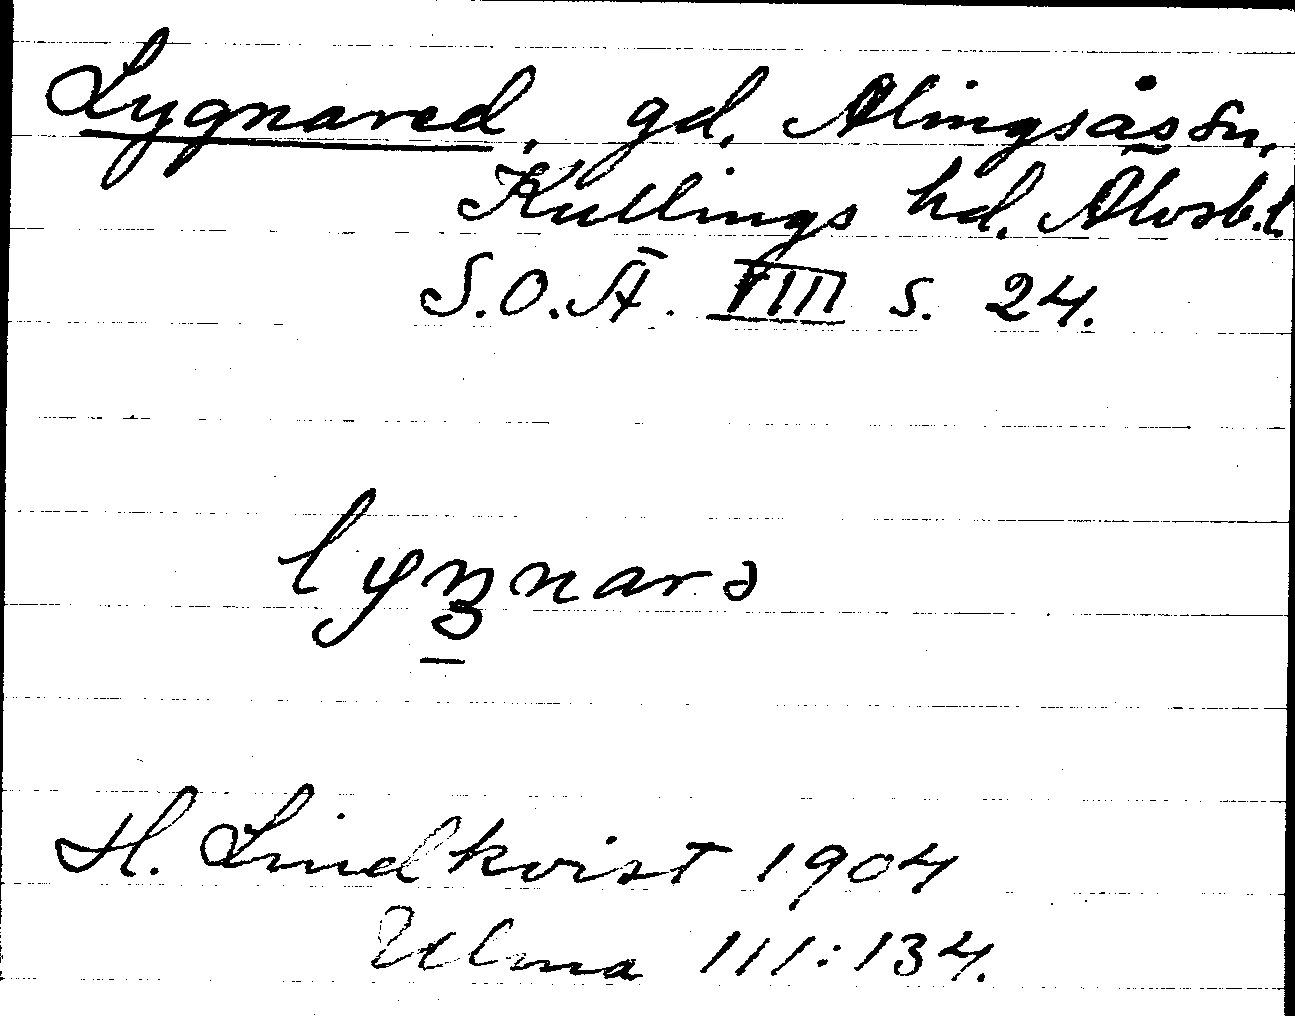 Lygnared, gd. Alingsås sn,
Kullings hd. Älvsb.l.
S.O.Ä. VIII s. 24.
lyŋnarə
H. Lindkvist 1904
Ulma 111:134.